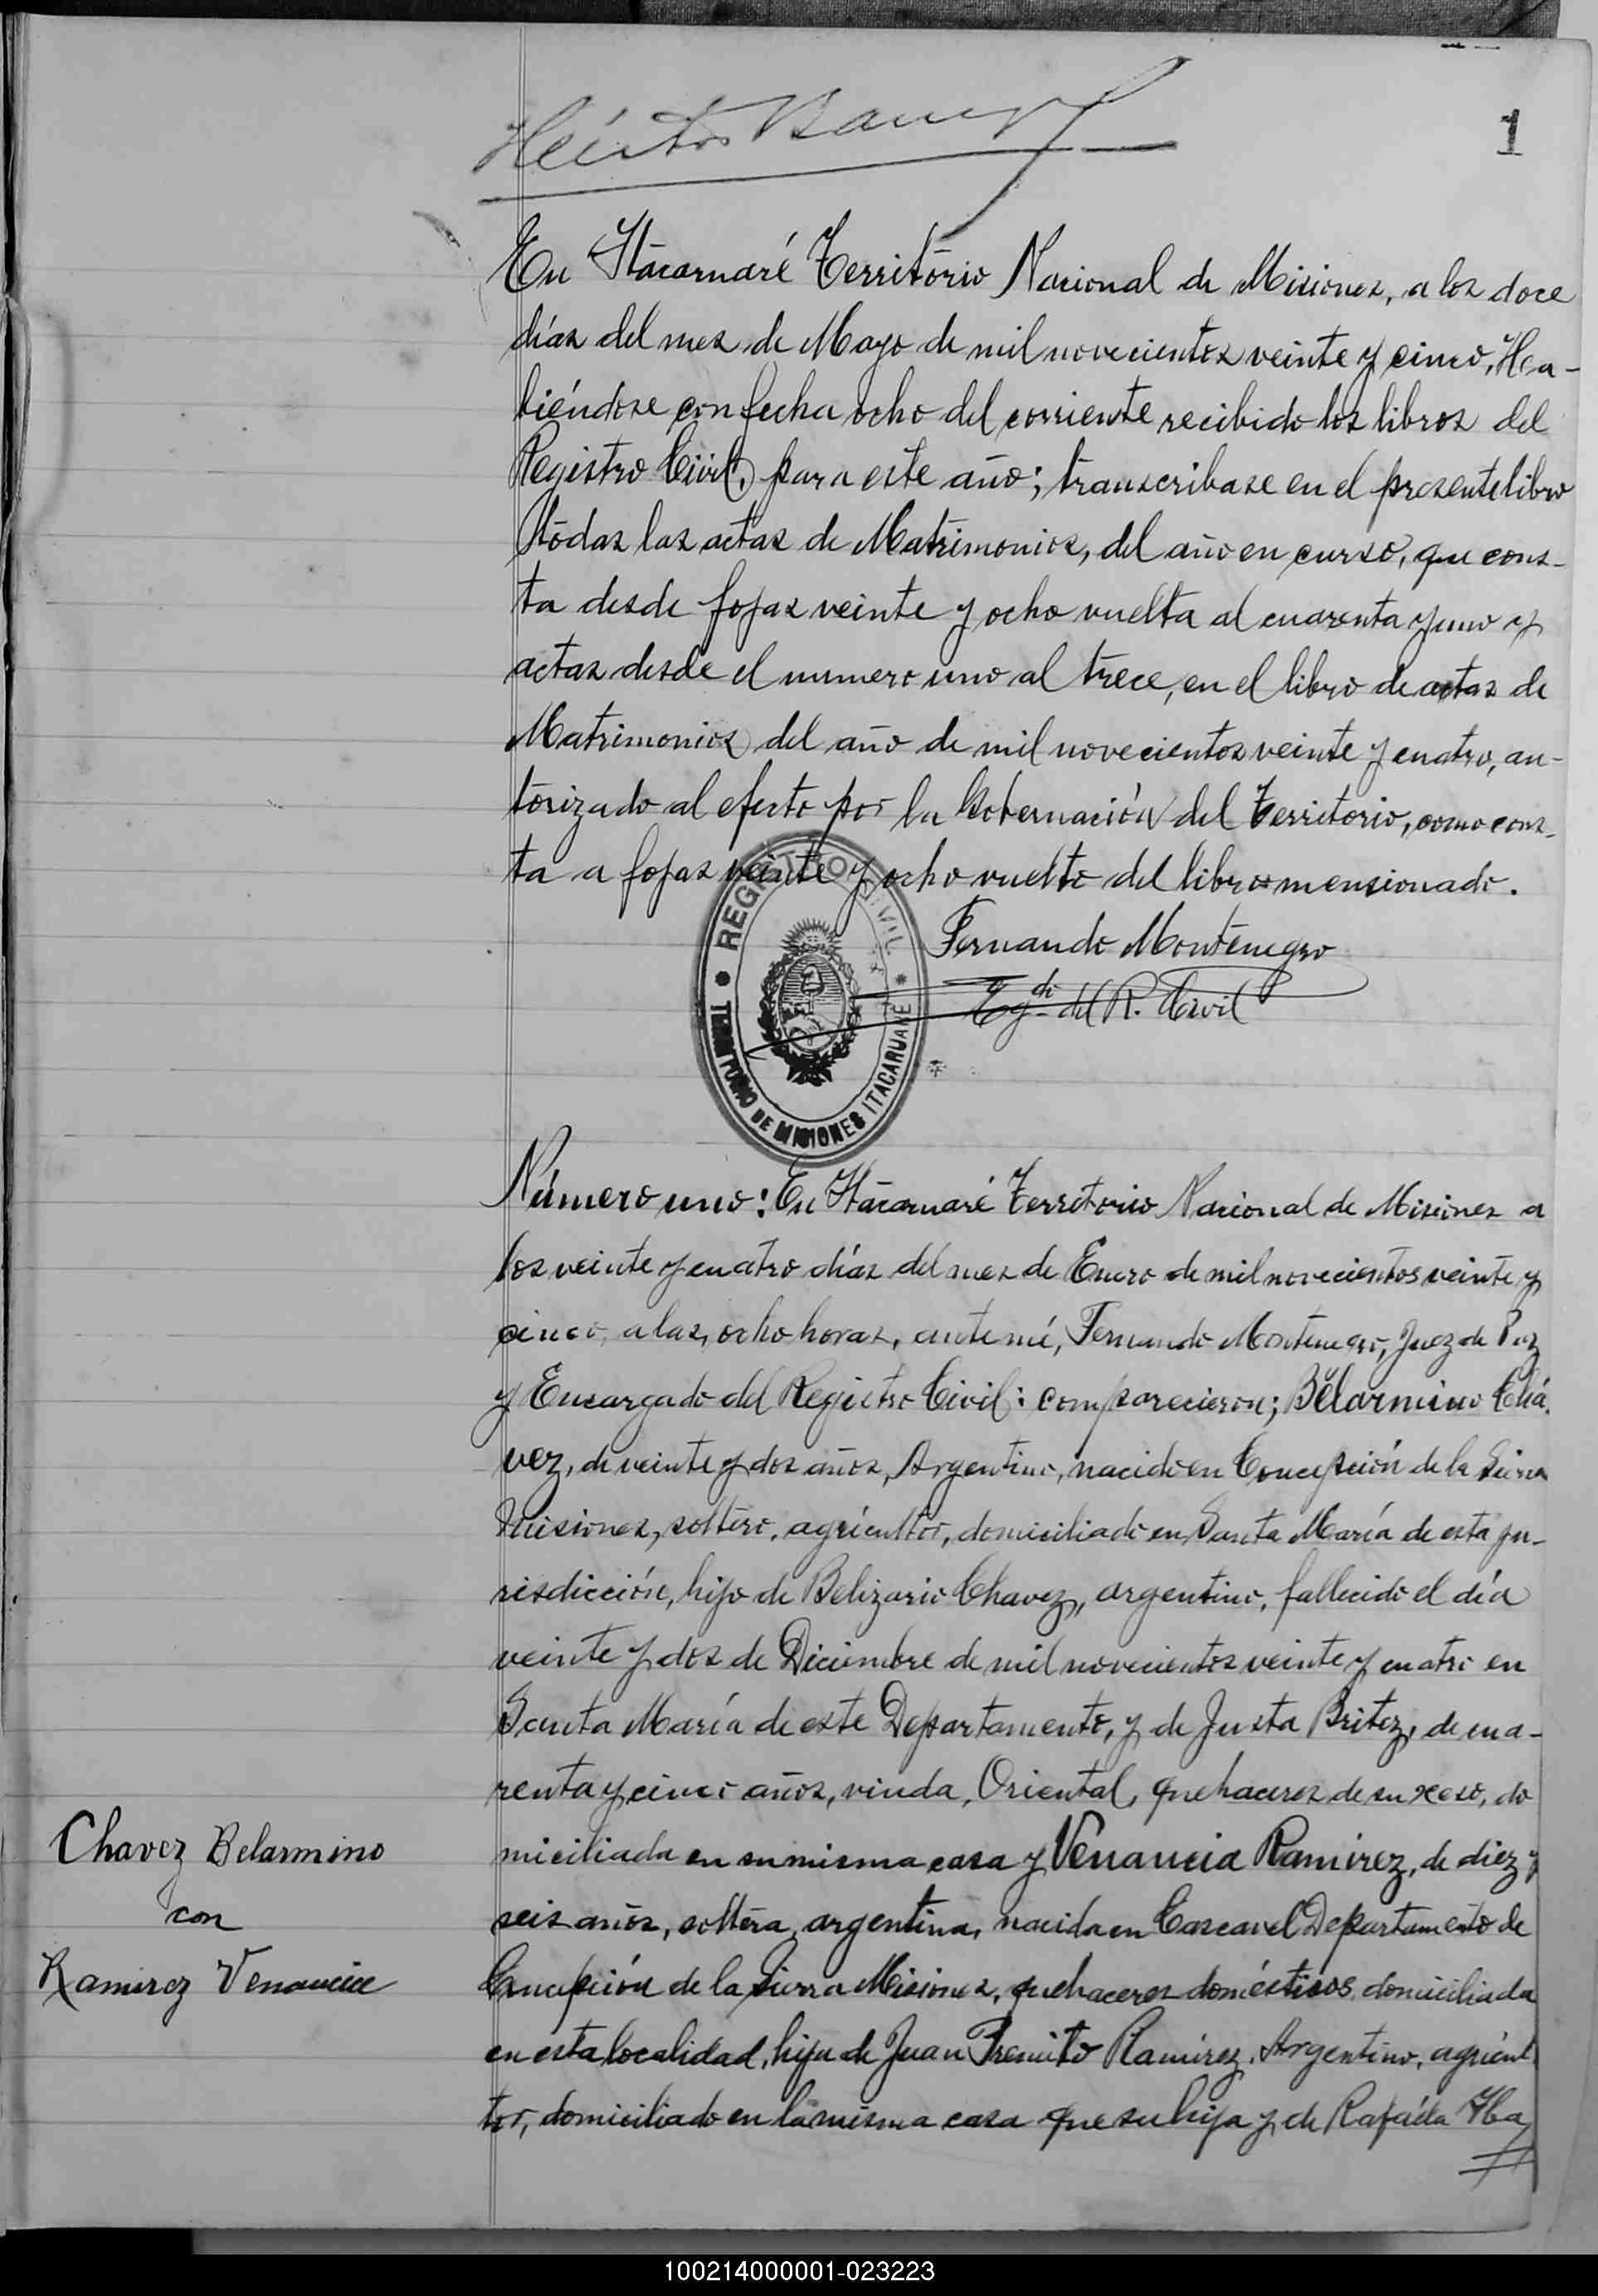 Héctor
1
En Itacaruaré Territorio Nacional de Misiones, a los doce
días del mes de Mayo de mil novecientos veinte y cinco, Ha-
biéndose con fecha ocho del corriente recibido los libros del
Registro Civil, para este año; transcribase en el presente libro
todas las actas de Matrimonios, del año en curso, que cons-
ta desde fojas veinte y ocho vuelta al cuarenta y uno y
actas desde el numero uno al trece, en el libro de actas de
Matrimonios del año de mil novecientos veinte y cuatro, au-
torizado al efecto por la Gobernación del Territorio, como cons-
ta a fojas veinte y ocho vuelto del libro mensionado.
Fernando Montenegro
Egdo del R. Civil
REGISTRO CIVIL
TERRITORIO DE MISIONES ITACARUARE
Número uno: En Itacaruaré Territorio Nacional de Misiones a
los veinte y cuatro días del mes de Enero de mil novecientos veinte y
cinco, a las, ocho horas, ante mí, Fernando Montenegro, Juez de Paz
y Encargado del Registro Civil: comparecieron; Belarmino Chá-
vez, de veinte y dos años, Argentino, nacido en Concepción de la Sierra
Misiones, soltero, agricultor, domiciliado en Santa María de esta ju-
risdicción, hijo de Belizario Chavez, argentino, fallecido el día
veinte y dos de Diciembre de mil novecientos veinte y cuatro en
Santa María de este Departamento, y de Justa Britez, de cua-
renta y cinco años, viuda, Oriental, quehaceres de su sexo, do
miciliada en su misma casa y Venancia Ramirez, de diez y
seis años, soltera, argentina, nacida en Cascavel Departamento de
Concepción de la Sierra Misiones, quehaceres domésticos, domiciliada
en esta localidad, hija de Juan Ramirez, Argentino, agricul
tor, domiciliado en la misma casa que su hija y de Rafaéla
Chavez Belarmino
con
Ramirez Venancia
100214000001-023223